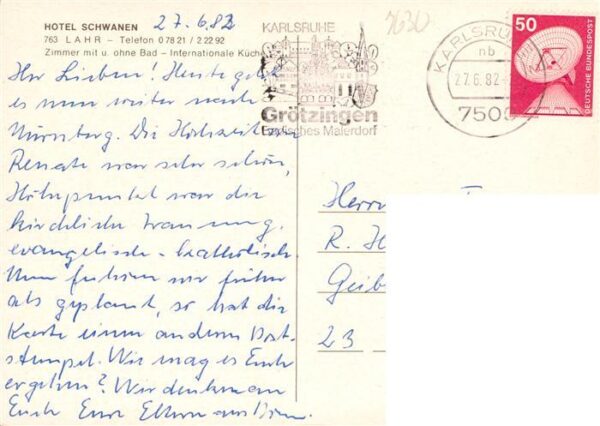 HOTEL SCHWANEN 27.6.82
763 LAHR – Telefon 0 78 21 / 2 22 92
Zimmer mit u. ohne Bad – Internationale Küche
Ihr Lieben! Heute geht
es nun weiter nach
Nürnberg. Die Hochzeit von
Renate war sehr schön,
Höhepunkt war die
kirchliche Trauung,
evangelisch-katholisch.
Nun fuhren wir früher
als geplant, so hat die
Karte einen anderen Post-
stempel. Wie mag es Euch
ergehen? Wir denken an
Euch Eure Eltern aus
7630
KARLSRUHE
Grötzingen
Badisches Malerdorf
KARLSRUHE
nb
27.6.82
7500
50
DEUTSCHE BUNDESPOST
Herrn
R. H
Geib
23